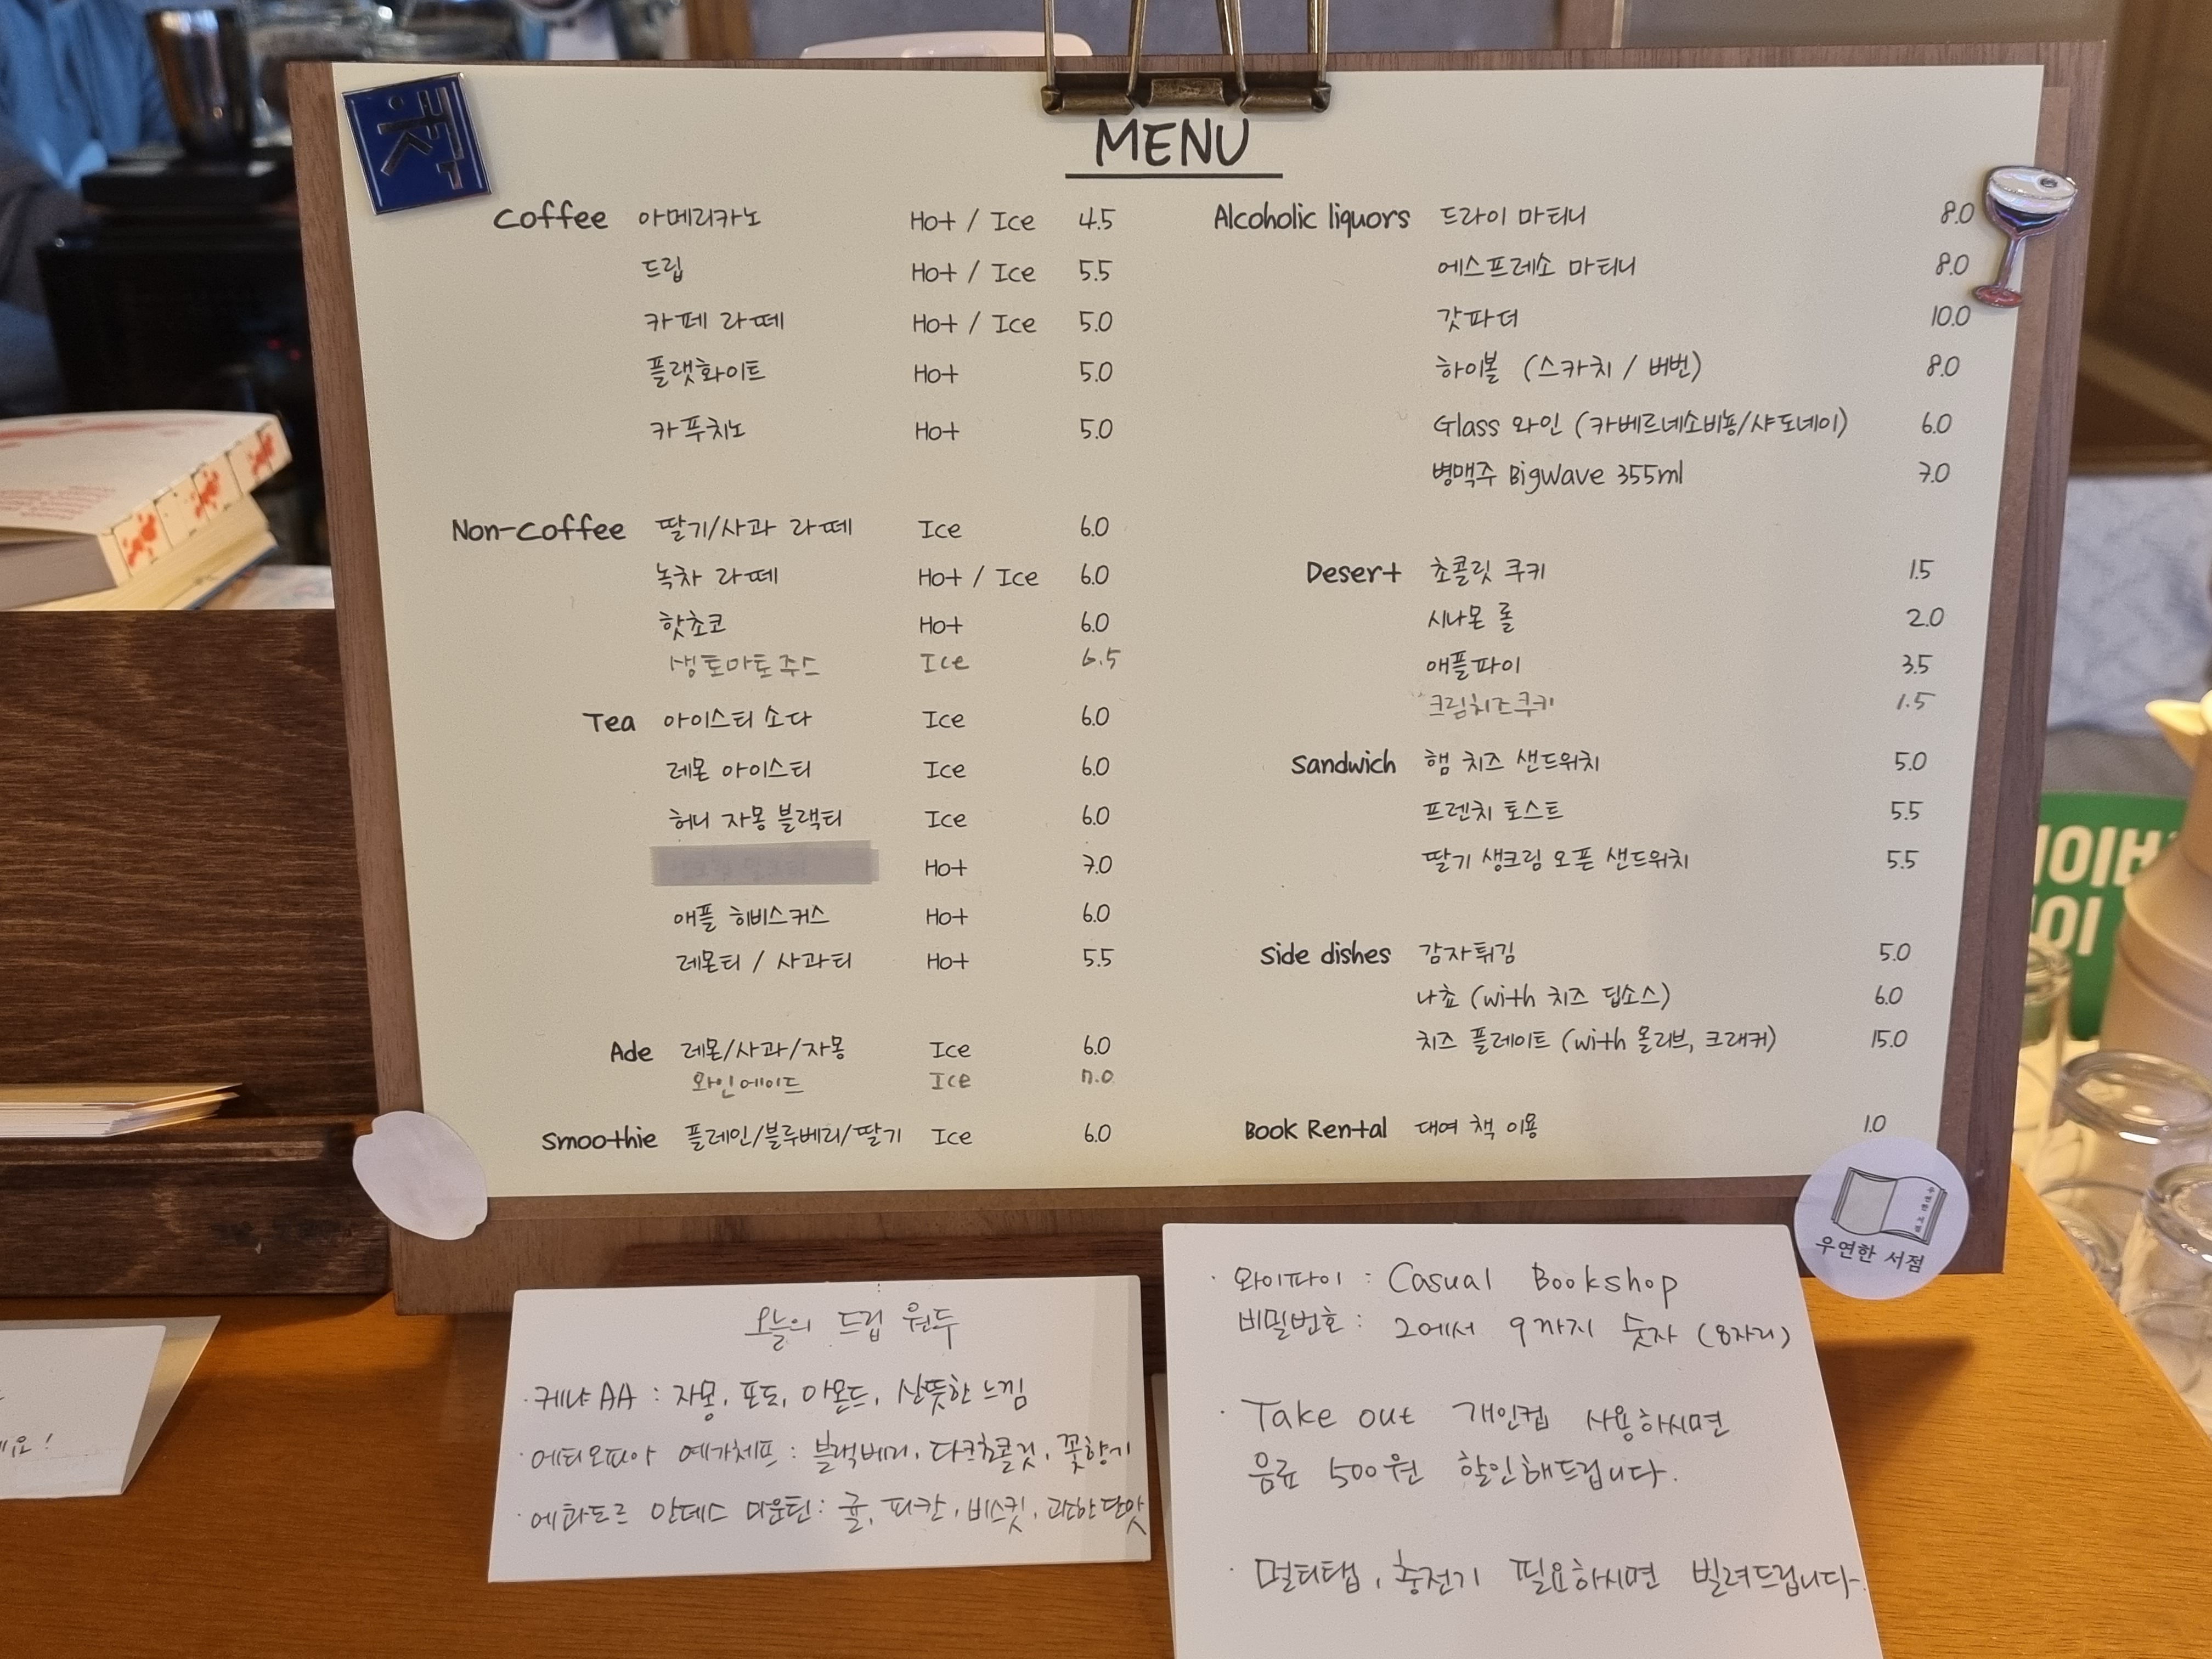 책
MENU
Coffee 아메리카노 Hot / Ice 4.5
드립 Hot / Ice 5.5
카페 라떼 Hot / Ice 5.0
플랫화이트 Hot 5.0
카푸치노 Hot 5.0
Non-Coffee 딸기/사과 라떼 Ice 6.0
녹차 라떼 Hot / Ice 6.0
핫초코 Hot 6.0
생토마토주스 Ice 6.5
Tea 아이스티 소다 Ice 6.0
레몬 아이스티 Ice 6.0
허니 자몽 블랙티 Ice 6.0
Hot 7.0
애플 히비스커스 Hot 6.0
레몬티 / 사과티 Hot 5.5
Ade 레몬/사과/자몽 Ice 6.0
와인에이드 Ice 7.0
Smoothie 플레인/블루베리/딸기 Ice 6.0
Alcoholic liquors 드라이 마티니 8.0
에스프레소 마티니 8.0
갓파더 10.0
하이볼 (스카치 / 버번) 8.0
Glass 와인 (카베르네소비뇽/샤도네이) 6.0
병맥주 BigWave 355ml 7.0
Desert 초콜릿 쿠키 1.5
시나몬 롤 2.0
애플파이 3.5
크림치즈쿠키 1.5
Sandwich 햄 치즈 샌드위치 5.0
프렌치 토스트 5.5
딸기 생크림 오픈 샌드위치 5.5
Side dishes 감자튀김 5.0
나쵸 (with 치즈 딥소스) 6.0
치즈 플레이트 (with 올리브, 크래커) 15.0
Book Rental 대여 책 이용 1.0
우연한 서점
우연한 서점
오늘의 드립 원두
· 케냐 AA : 자몽, 포도, 아몬드, 산뜻한 느낌
· 에티오피아 예가체프 : 블랙베리, 다크초콜릿, 꽃향기
· 에콰도르 안데스 마운틴 : 귤, 피칸, 비스킷, 과한단맛
· 와이파이 : Casual Bookshop
비밀번호 : 2에서 9까지 숫자 (8자리)
· Take out 개인컵 사용하시면
음료 500원 할인해드립니다.
· 멀티탭, 충전기 필요하시면 빌려드립니다.
요!